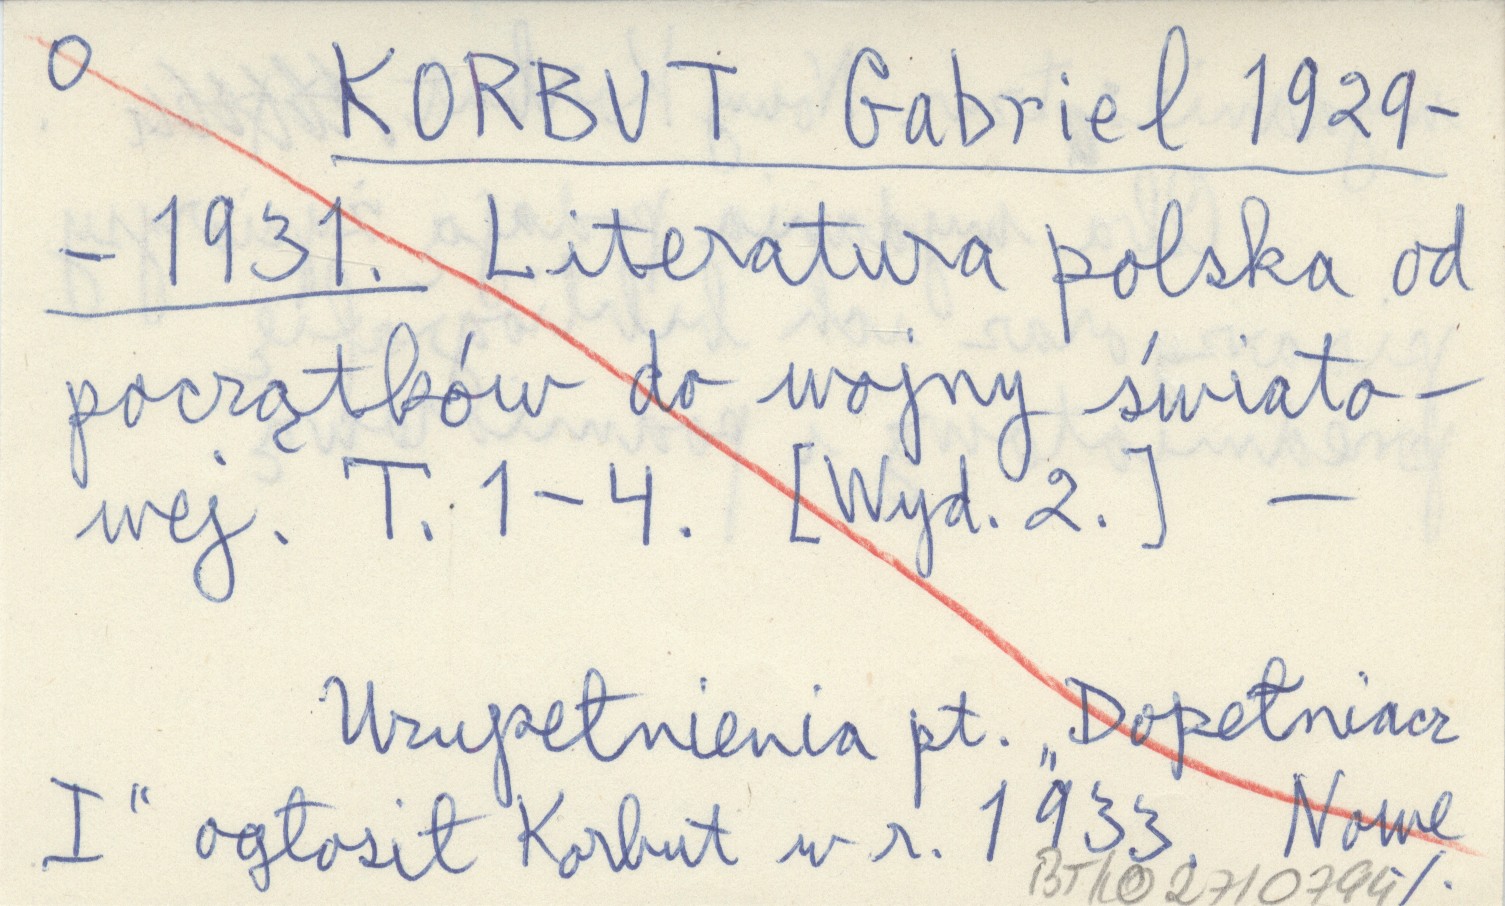 O KORBUT Gabriel 1929-
-1931. Literatura polska od
początków do wojny świato-
wej. T. 1-4. [Wyd. 2.] —
Uzupełnienia pt. „Dopełniacz
I" ogłosił Korbut w r. 1933. Nowe
2710794 /.